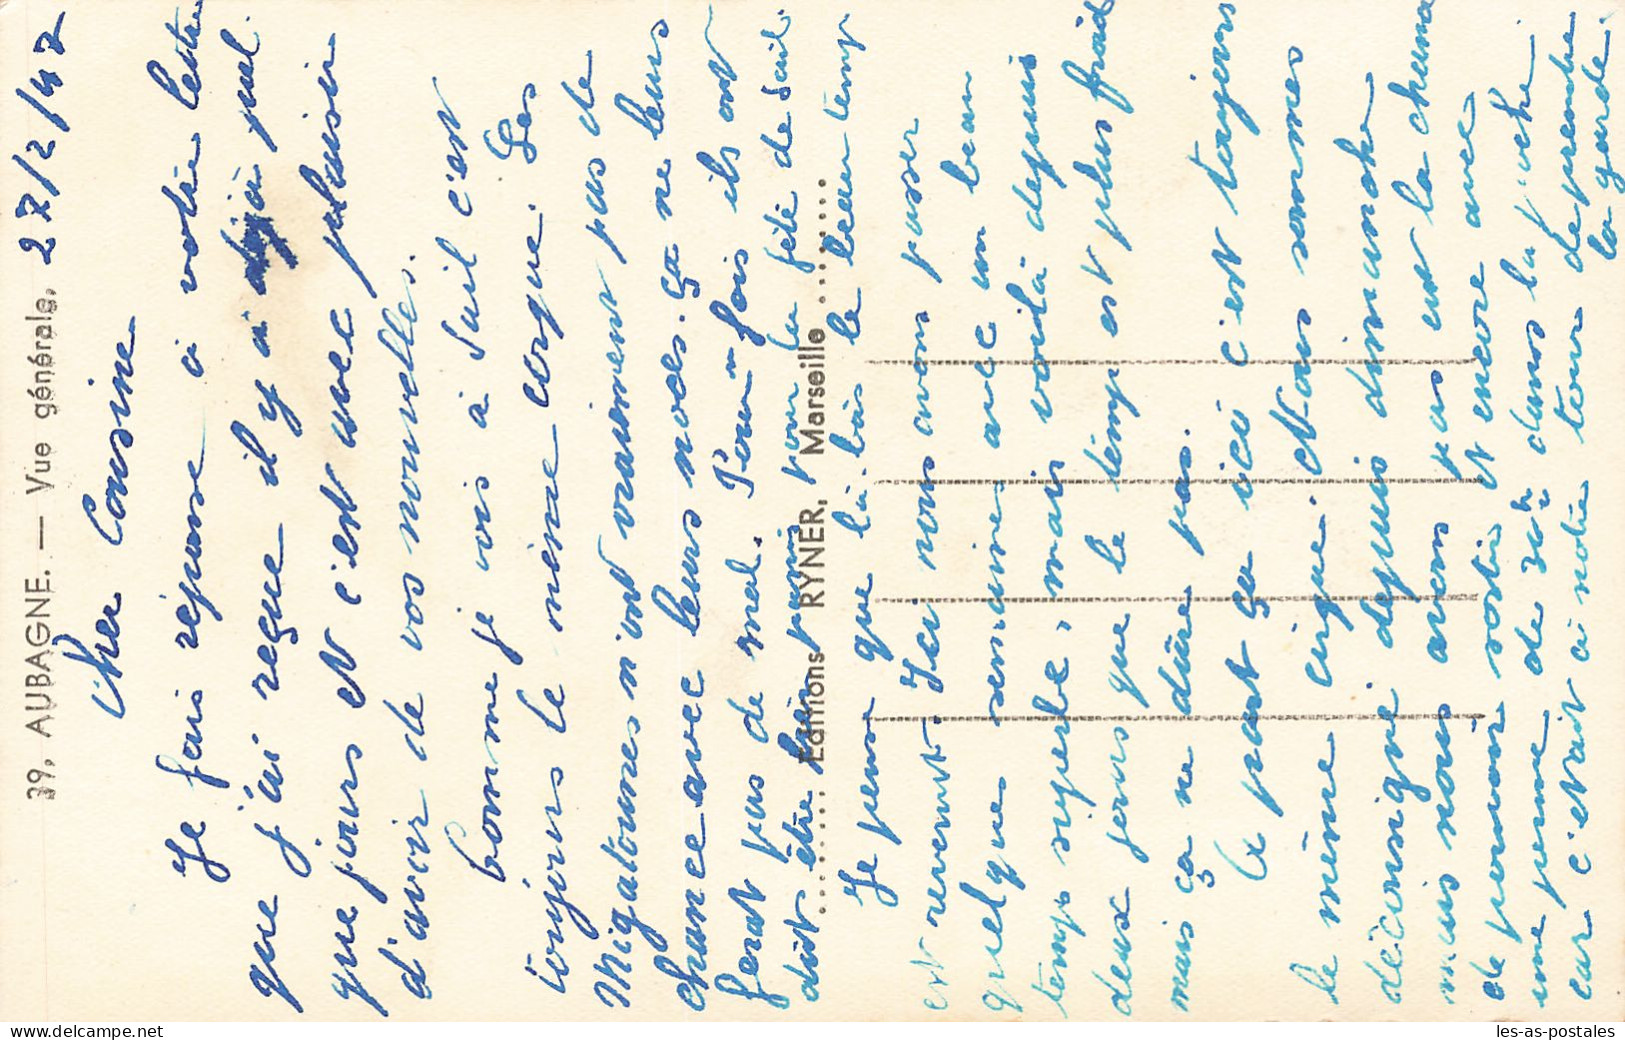 39. AUBAGNE. — Vue générale.
27/2/47
Cher Cousine
Je fais réponse à votre lettre
que j'ai reçue il y a déjà quel
que jours et c'est avec plaisir
d'avoir de vos nouvelles.
Comme je vois à Suil c'est
toujours le même cirque. Les
Migatounes n'ont vraiment pas de
chance avec leurs noces. ça ne leurs
ferat pas de mal. Pour une fois ils ont
doit être bien pour la fête de Suil.
Editions RYNER, Marseille
Je pense que là-bas le beau temp
est revenut. Ici nous avons passer
quelque semaines avec un beau
temps superbe, mais voilà depuis
deux jours que le temp est plus froid
mais ça ne dure pas.
A part ça ici c'est toujours
le même cirque. Nous sommes
déconsigné depuis dimanche
mais nous avons pas eut la chance
de pouvoir sortir et encore avec
une perme de 24h dans la poche
car c'était à notre tour de prendre
la garde.
les-as-postales